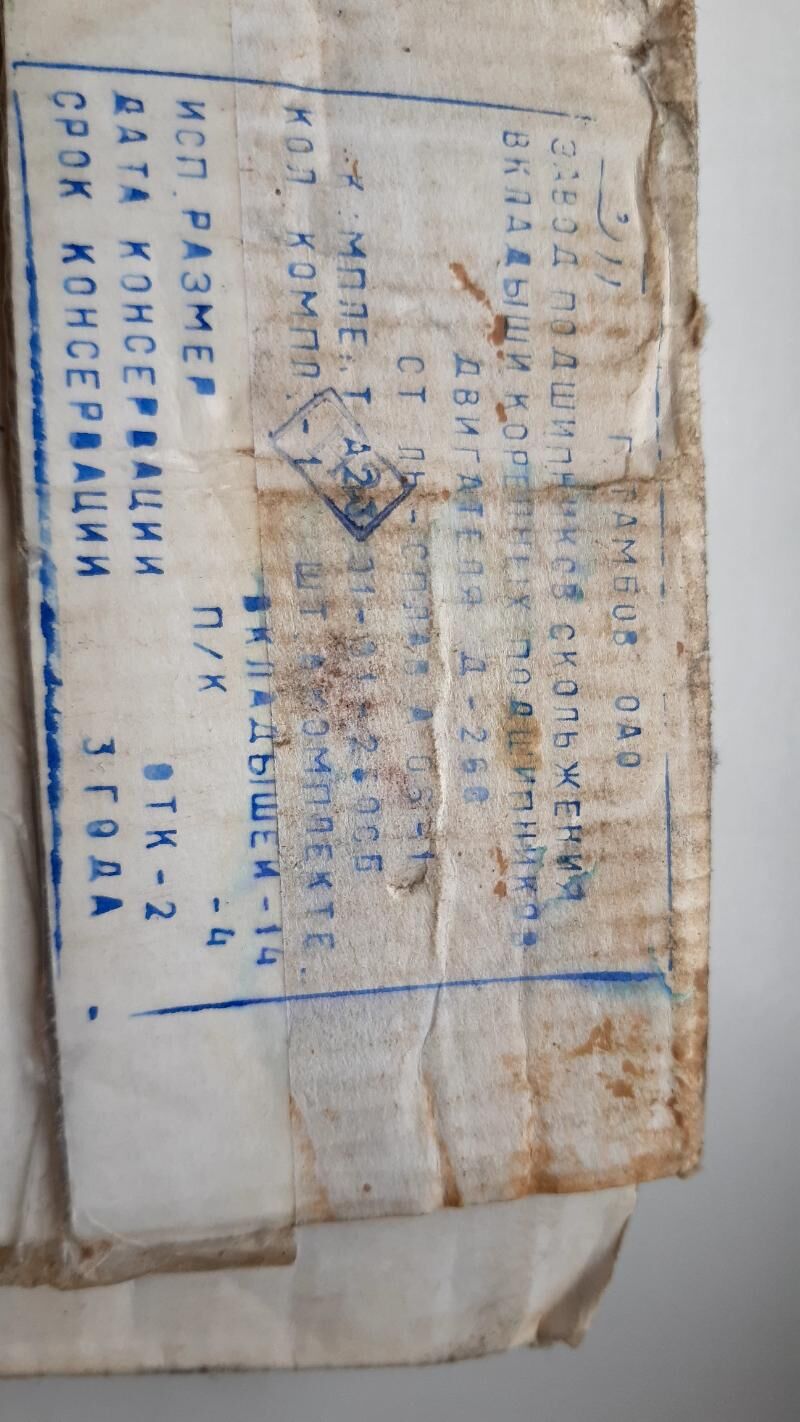 Г. ТАМБОВ ОАО
ЗАВОД ПОДШИПНИКОВ СКОЛЬЖЕНИЯ
ВКЛАДЫШИ КОРЕННЫХ ПОДШИПНИКОВ
ДВИГАТЕЛЯ Д-260
СТАЛЬ-СПЛАВ АО6-1
КОМПЛЕКТ А23.01-
КОЛ КОМПЛ.-1 ШТ. В КОМПЛЕКТЕ.
ВКЛАДЫШЕЙ-14
ИСП.РАЗМЕР П/К -4
ДАТА КОНСЕРВАЦИИ ОТК-2
СРОК КОНСЕРВАЦИИ 3 ГОДА .